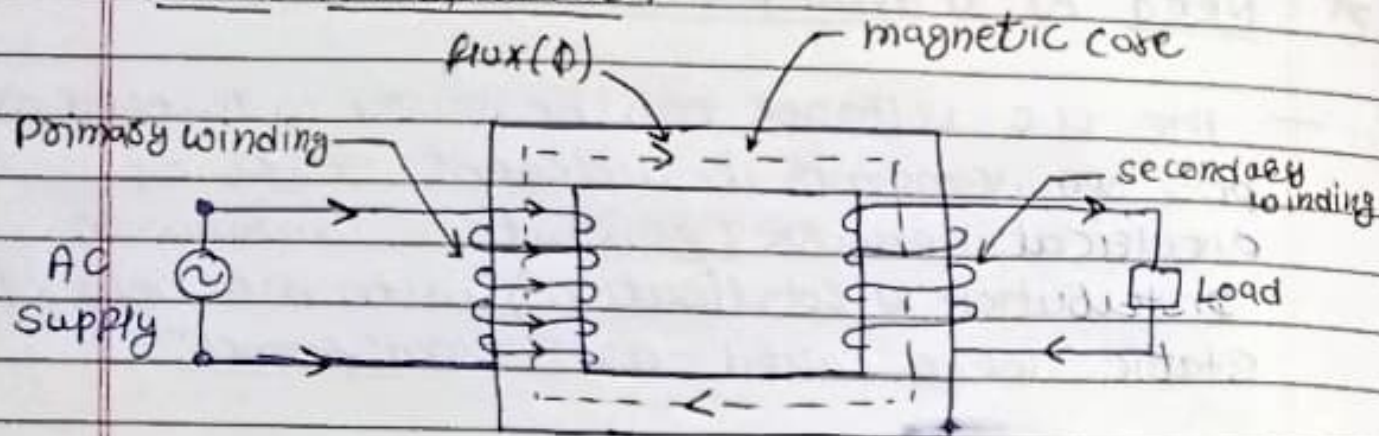 flux(Φ)
magnetic core
Primary winding
secondary
winding
AC
Supply
Load